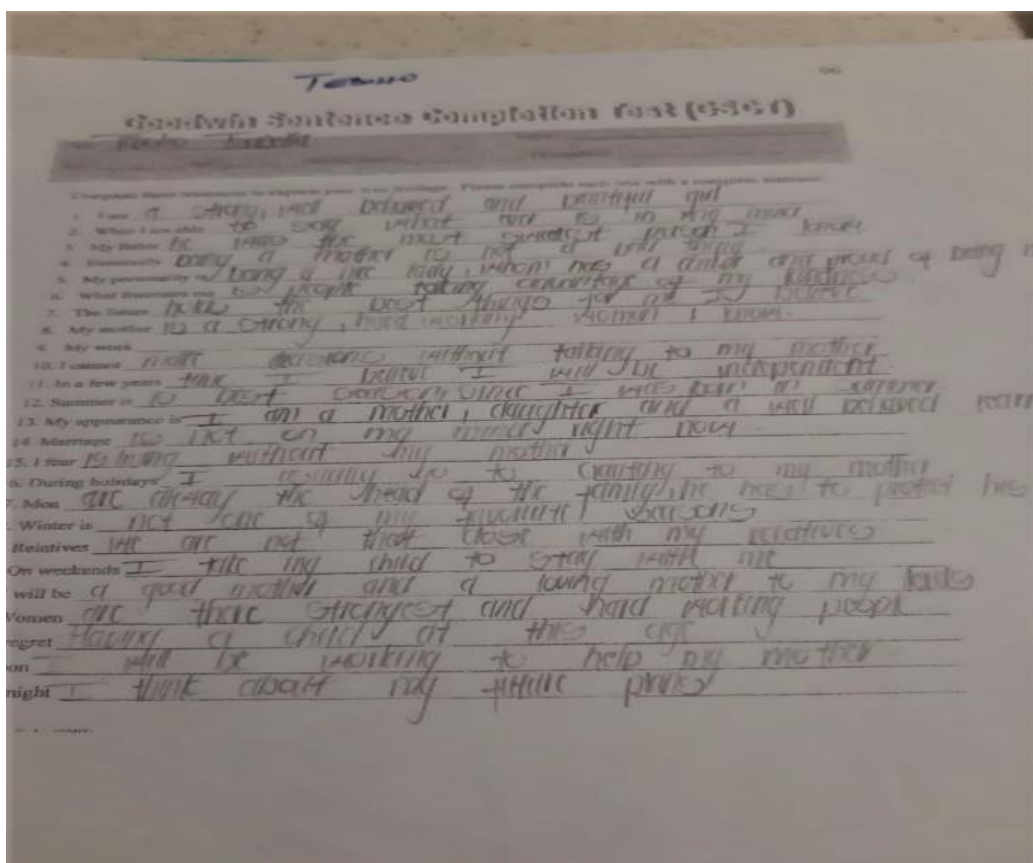 Goodwin Sentence Completion Test (GSCT)
Complete these sentences to express your true feelings. Please complete each one with a complete sentence.
1. I am a strong, well behaved and beautiful girl
2. When I am able to say what is in my mind
3. My father he was the most person I know
4. Eventually being a mother is not a thing
5. My personality is being a lady, whom has a and proud of being
6. What frustrates me is people taking advantage of my kindness
7. The future holds the best things for me I believe
8. My mother is a strong, hard working women I know.
9. My work
10. I cannot make decisions without talking to my mother
11. In a few years time I believe I will be independent
12. Summer is is best season since I was born in summer
13. My appearance is I am a mother, daughter and a well behaved
14. Marriage is not on my mind right now
15. I fear is living without my mother
6. During holidays I normally go to to my mother
7. Men are the head of the family, he has to protect his
Winter is not one of my favourite seasons
Relatives we are not that close with my relatives
On weekends I take my child to stay with me
will be a good mother and a loving mother to my kids
Women are there strongest and hard working people
regret Having a child at this age
on I will be working to help my mother
night I think about my future plans